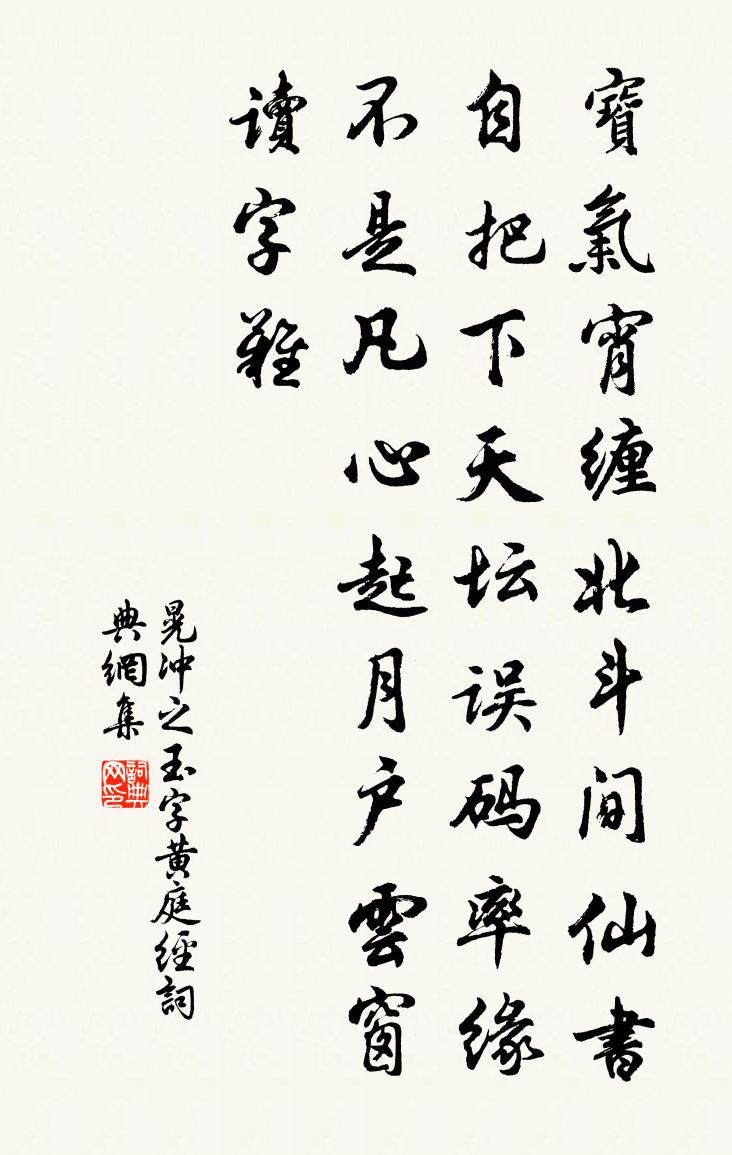 寶氣宵纏北斗間仙書
自把下天坛误码率缘
不是凡心起月户雲窗
讀字難
晁沖之玉字黄庭經詞
典網集
詞典
网印